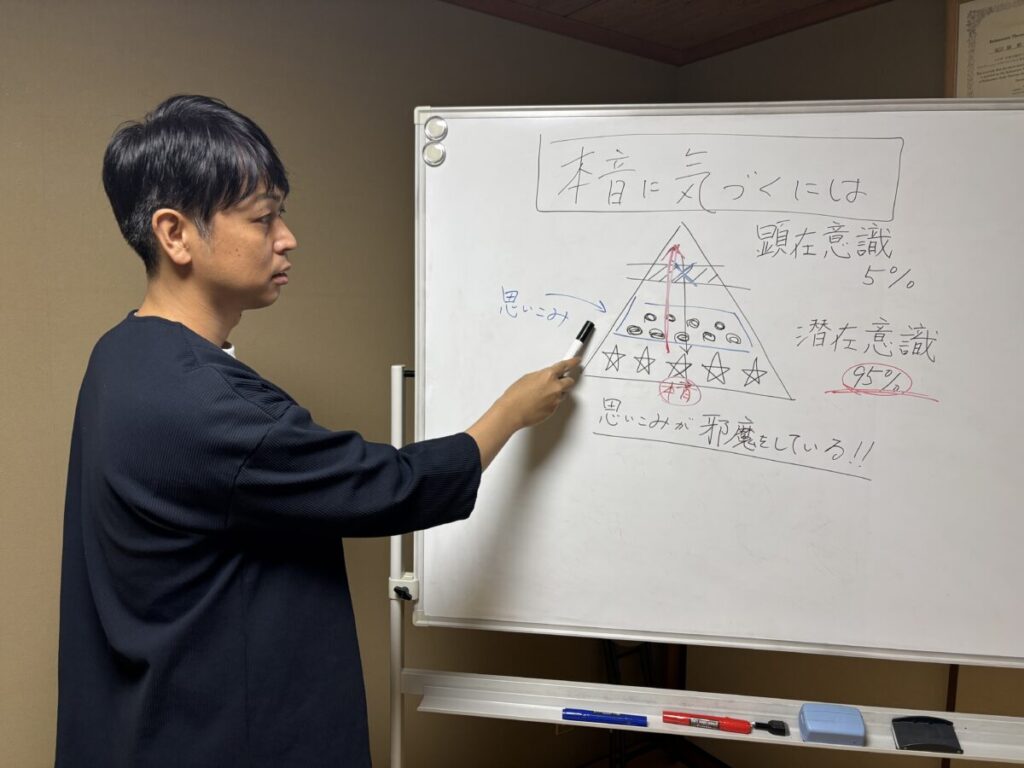 本音に気づくには
顕在意識
5%
思いこみ
潜在意識
95%
本音
思いこみが邪魔をしている!!